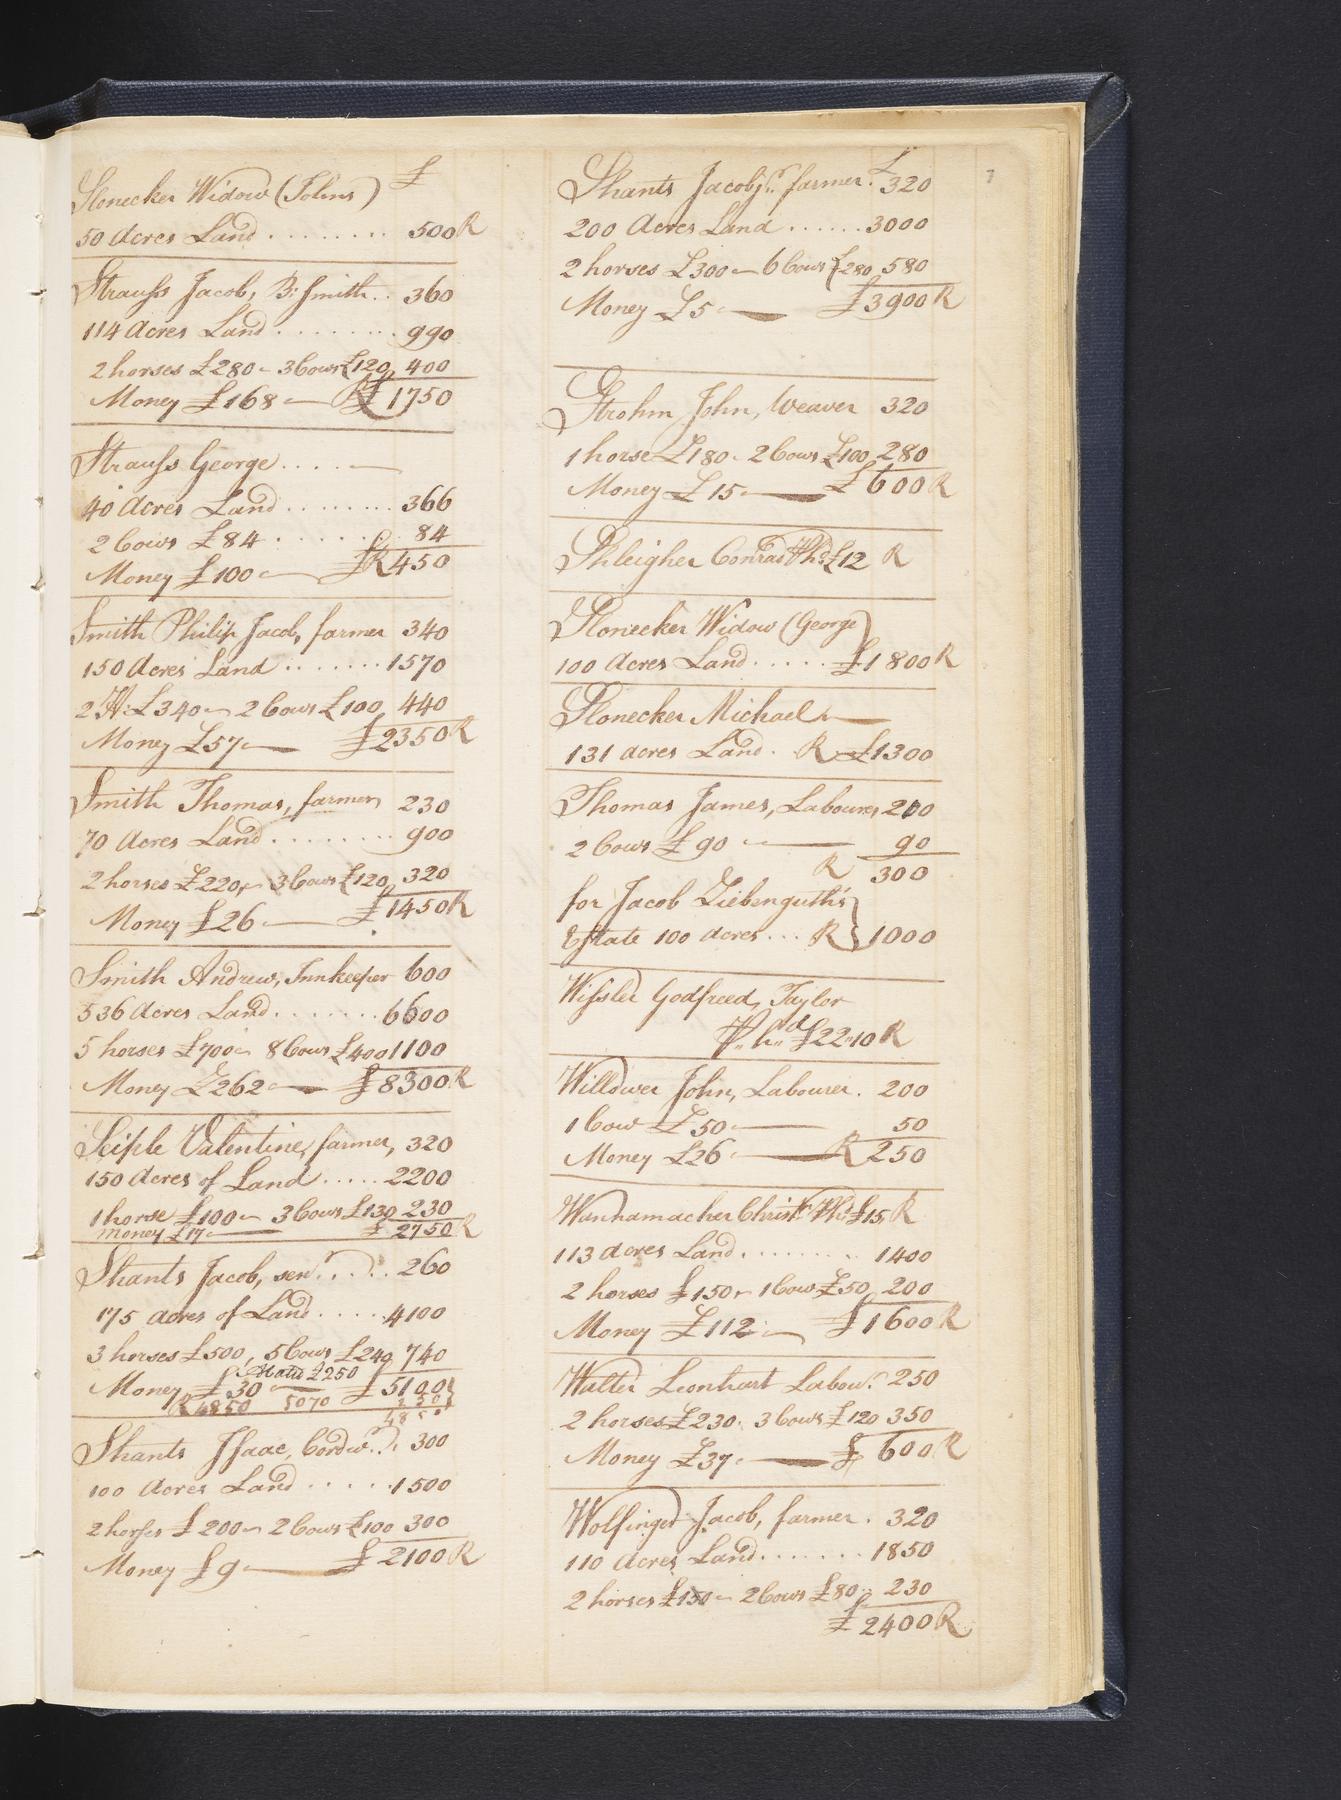 Slonecker Widow (Johns) £
50 Acres Land ......... 500 R
Strauss Jacob, B: Smith .. 360
114 Acres Land ......... 990
2 horses £280 - 3 Cows £120 400
Money £168 — R £ 1750
Strauss George .... —
40 Acres Land ......... 366
2 Cows £84 ...... 84
Money £100 — £ R 450
Smith Philip Jacob, farmer 340
150 Acres Land ....... 1570
2 H: £340 - 2 Cows £100 440
Money £57 — £2350 R
Smith Thomas, farmer 230
70 Acres Land ......... 900
2 horses £220, - 3 Cows £120 320
Money £26 — £1450 R
Smith Andrew, Innkeeper 600
536 Acres Land ....... 6600
5 horses £700 - 8 Cows £400 1100
Money £262 — £8300 R
Seiple Valentine, farmer, 320
150 Acres of Land ..... 2200
1 horse £100 - 3 Cows £130 230
money £17 — £ 2750 R
Shants Jacob, senr. .... 260
175 acres of Land ..... 4100
3 horses £500, 5 Cows £240 740
£250
Money £30 — £ 5100
R 4850 5070 250
4850
Shants Isaac, Cordwr. 300
100 Acres Land ..... 1500
2 horses £200 - 2 Cows £100 300
Money £9 — £ 2100 R
7
Shants Jacob jr. farmer. £ 320
200 Acres Land ...... 3000
2 horses £300 - 6 Cows £280 580
Money £5 — £3900 R
Strohm John, Weaver 320
1 horse £180 - 2 Cows £100 280
Money £15 — £ 600 R
Shleigher Conrad Phd £12 R
Slonecker Widow (George)
100 Acres Land ..... £1800 R
Slonecker Michael —
131 acres Land . R £1300
Thomas James, Labourer 200
2 Cows £90 — 90
R 300
for Jacob Ziebenguth's
Estate 100 acres ... R } 1000
Wissler Godfreed, Taylor
P. hd £22.10 R
Willower John, Labourer . 200
1 Cow £50 — 50
Money £26 — R 250
Wanhamacher Christn Phd £15, R
113 acres Land ......... 1400
2 horses £150 - 1 Cow £50 200
Money £112 — £1600 R
Walter Leonhart Labour. 250
2 horses £230. 3 Cows £120 350
Money £37 — £ 600 R
Wolfinger Jacob, farmer . 320
110 Acres Land ....... 1850
2 horses £150 - 2 Cows £80 .. 230
£ 2400 R